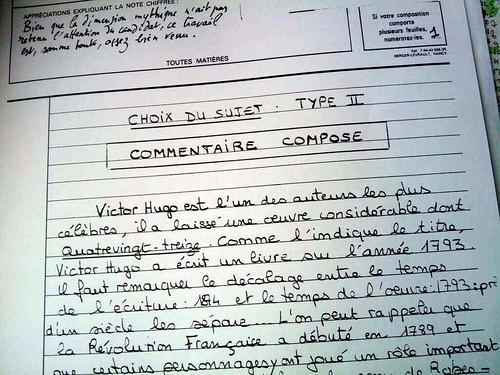 APPRÉCIATIONS EXPLIQUANT LA NOTE CHIFFRÉE :
Bien que la dimension mythique n'ait pas
retenu l'attention du candidat, ce travail
est, somme toute, assez bien venu.
TOUTES MATIÈRES
Si votre composition
comporte
plusieurs feuilles,
numérotez-les. 1
BERGER-LEVRAULT, NANCY
CHOIX DU SUJET . TYPE II
COMMENTAIRE COMPOSE
Victor Hugo est l'un des auteurs les plus
célèbres, il a laissé une œuvre considérable dont
Quatrevingt-treize. Comme l'indique le titre,
Victor Hugo a écrit un livre sur l'année 1793.
Il faut remarquer le décalage entre le temps
de l'écriture : et le temps de l'œuvre : 1793 : prè
d'un siècle les sépare. L'on peut rappeler que
la Révolution Française a débuté en 1789 et
que certains personnages y ont joué un rôle important
de Robes-